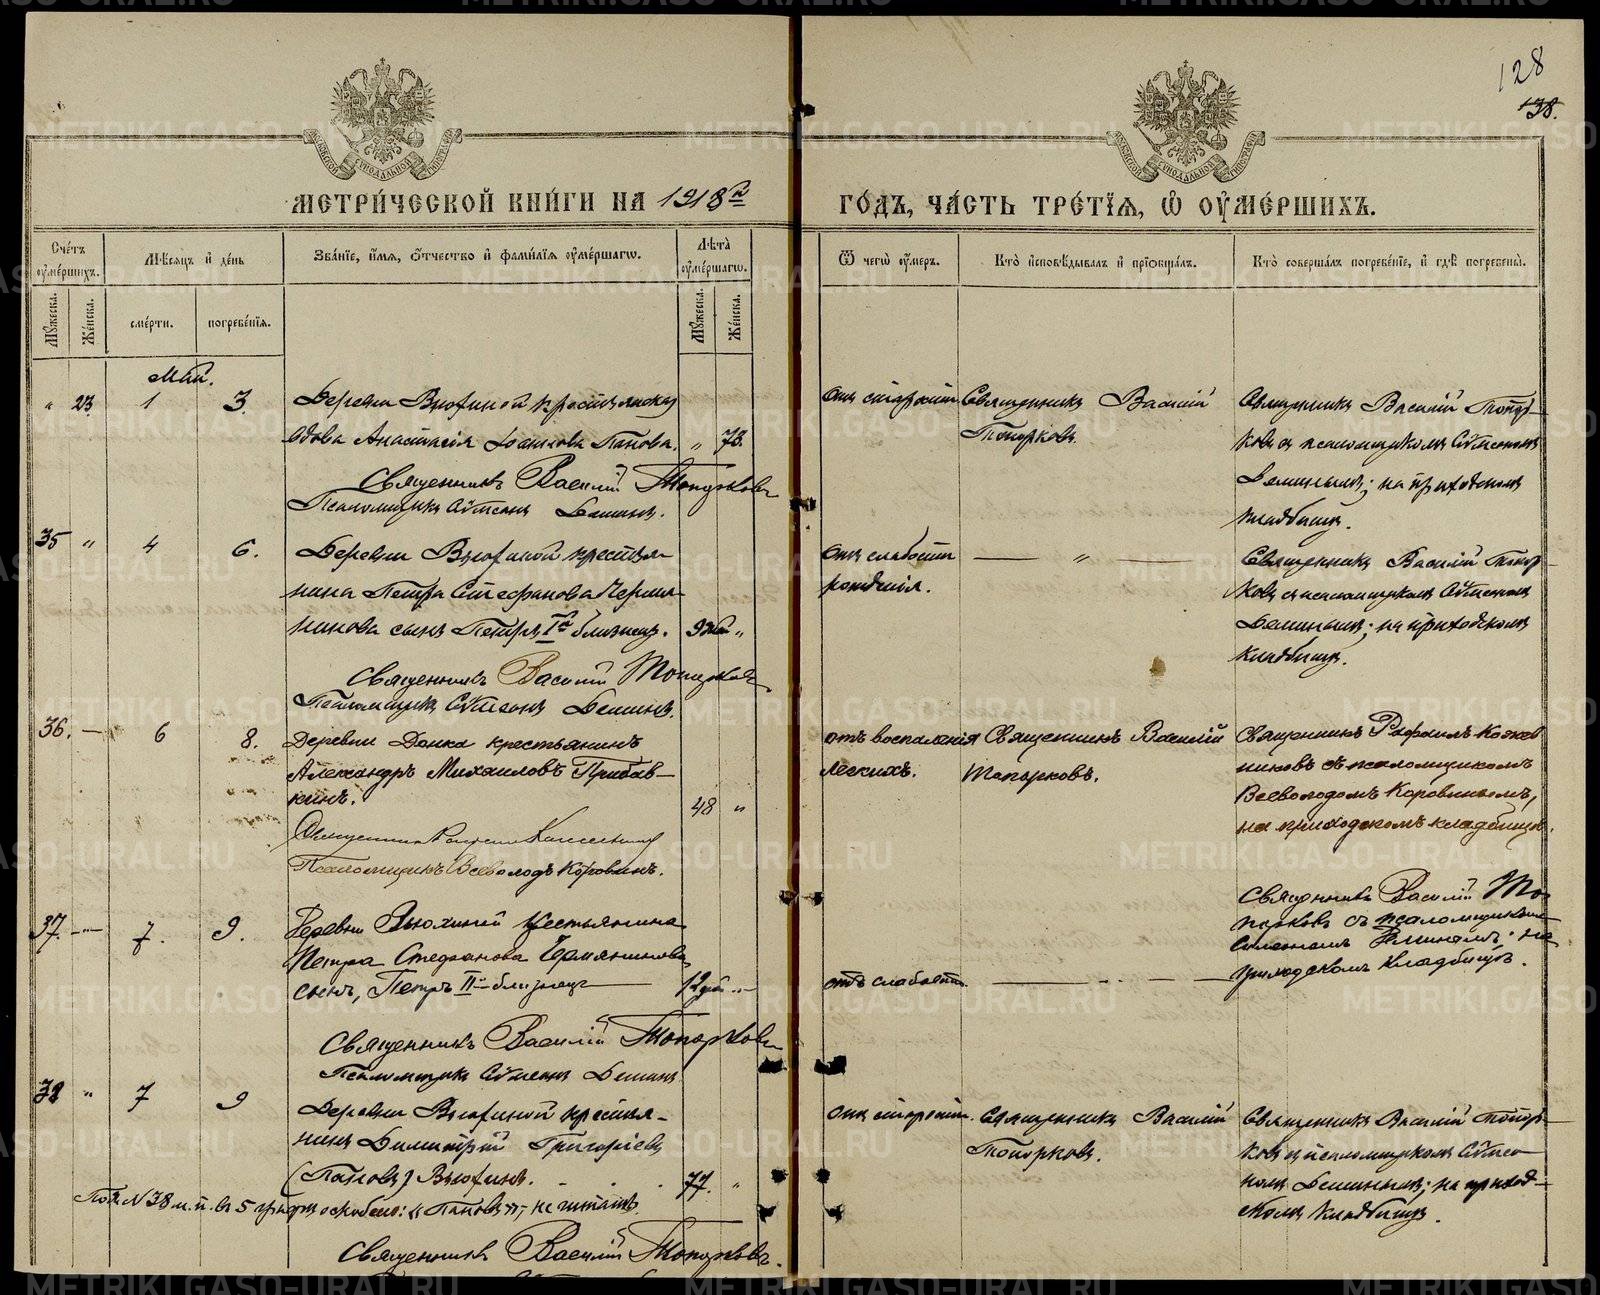 128
138.
МЕТРИ́ЧЕСКОЙ КНИ́ГИ НА 1918й
ГО́ДЪ, ЧА́СТЬ ТРЕ́ТІѦ, Ѡ ОУ҆МЕ́РШИХЪ.
Сче́тъ оу҆ме́ршихъ.
Мѣ́сяцъ и҆ де́нь
Зва́ніе, и҆́мя, ѻ҆́тчество и҆ фами́лія оу҆ме́ршагѡ.
Лѣ́та оу҆ме́ршагѡ.
Ѿ чегѡ̀ оу҆́меръ.
Кто̀ и҆сповѣ́дывалъ и҆ прїѡбща́лъ.
Кто̀ соверша́лъ погребе́ніе, и҆ гдѣ̀ погребены̀.
Мꙋ́жеска.
Же́нска.
сме́рти.
погребе́нія.
Мꙋ́жеска.
Же́нска.
Май.
„ 23. 1 3.
Деревни Вьюхиной крестьянская
вдова Анастасія Попова. „ 78.
Священникъ Василій Топорковъ
Псаломщикъ Сѵмеонъ Деминъ.
отъ старости
Священникъ Василій
Топорковъ.
Священникъ Василій Топор-
ковъ съ псаломщикомъ Сѵмеономъ
Деминымъ; на приходскомъ
кладбищѣ.
35 „ 4 6.
Деревни Вьюхиной крестья-
нина Петра Стефанова Чермя-
нинова сынъ Петръ Iй близнецъ. „
Священникъ Василій Топорковъ
Псаломщикъ Сѵмеонъ Деминъ.
отъ слабости
рожденія.
— „ —
Священникъ Василій Топор-
ковъ съ псаломщикомъ Сѵмеономъ
Деминымъ; на приходскомъ
кладбищѣ.
36. — 6 8.
Деревни Донка крестьянинъ
Александръ Михаиловъ Прибав-
кинъ. 48 „
Псаломщикъ Всеволодъ Коровинъ.
отъ воспаленія
легкихъ.
Священникъ Василій
Топорковъ.
Священникъ Рафаилъ Кожев
никовъ съ псаломщикомъ
Всеволодомъ Коровинымъ,
на приходскомъ кладбищѣ.
37. — 7. 9.
Деревни Вьюхиной крестьянина
Петра Стефанова Чермянинова
сынъ, Петръ II-близнецъ — 12 дн. „
Священникъ Василій Топорковъ
Псаломщикъ Сѵмеонъ Деминъ
отъ слабости.
Священникъ Василій То-
порковъ съ псаломщикомъ
Симеономъ Деминымъ; на
приходскомъ кладбищѣ.
38 „ 7 9
Деревни Вьюхиной крестья-
нинъ Димитрій Григоріевъ
(Поповъ) Вьюхинъ. 77. „
№ 38 м.п. въ 5 графѣ оскоблено: „Поповъ“,- не читать.
Священникъ Василій Топорковъ.
отъ старости.
Священникъ Василій
Топорковъ.
Священникъ Василій Топор-
ковъ съ псаломщикомъ Сѵмео-
номъ Деминымъ; на приход-
скомъ кладбищѣ.
METRIKI.GASO-URAL.RU